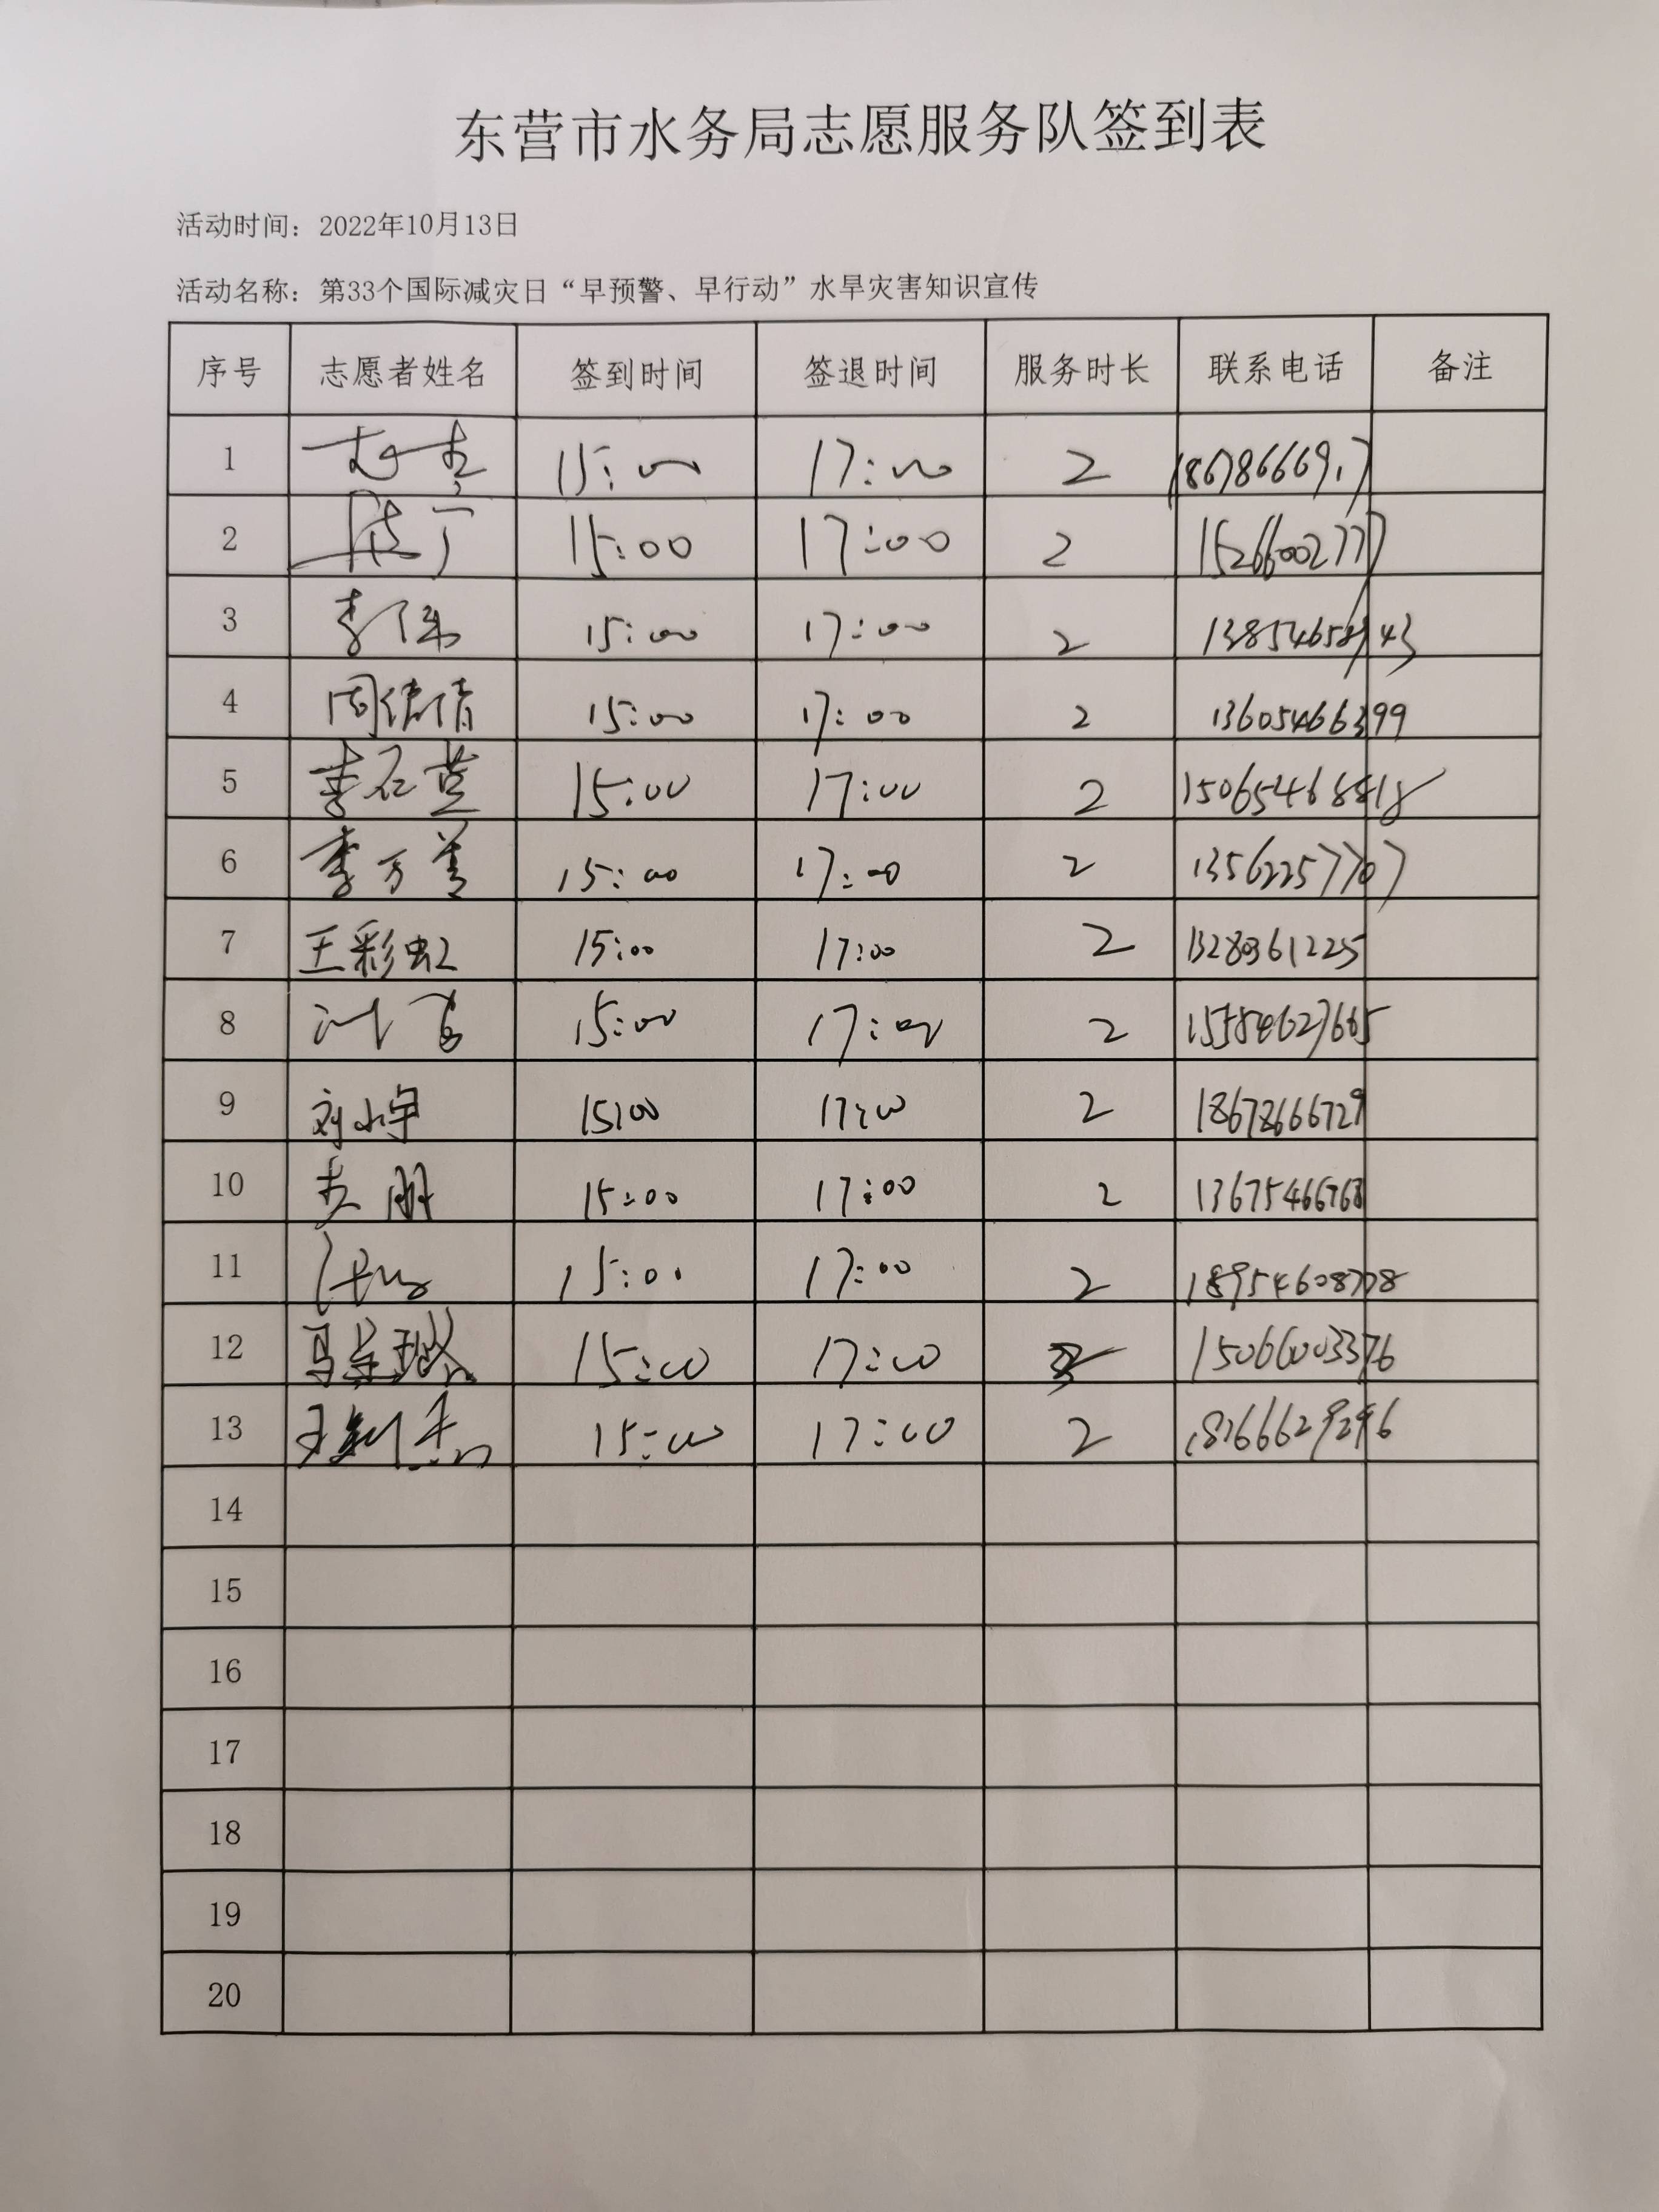 东营市水务局志愿服务队签到表
活动时间：2022年10月13日
活动名称：第33个国际减灾日“早预警、早行动”水旱灾害知识宣传
序号 志愿者姓名 签到时间 签退时间 服务时长 联系电话 备注
1 15:00 17:00 2
2 15:00 17:00 2 15266002777
3 15:00 17:00 2
4 周倩倩 15:00 17:00 2 13605466399
5 李石英 15:00 17:00 2 15065468818
6 李万美 15:00 17:00 2 13562257707
7 王彩虹 15:00 17:00 2 13280361225
8 15:00 17:00 2 15584627665
9 刘小宇 15:00 17:00 2 18678666729
10 15:00 17:00 2 13675466768
11 15:00 17:00 2 18954608778
12 15:00 17:00 2 15066003376
13 15:00 17:00 2 18766629296
14
15
16
17
18
19
20